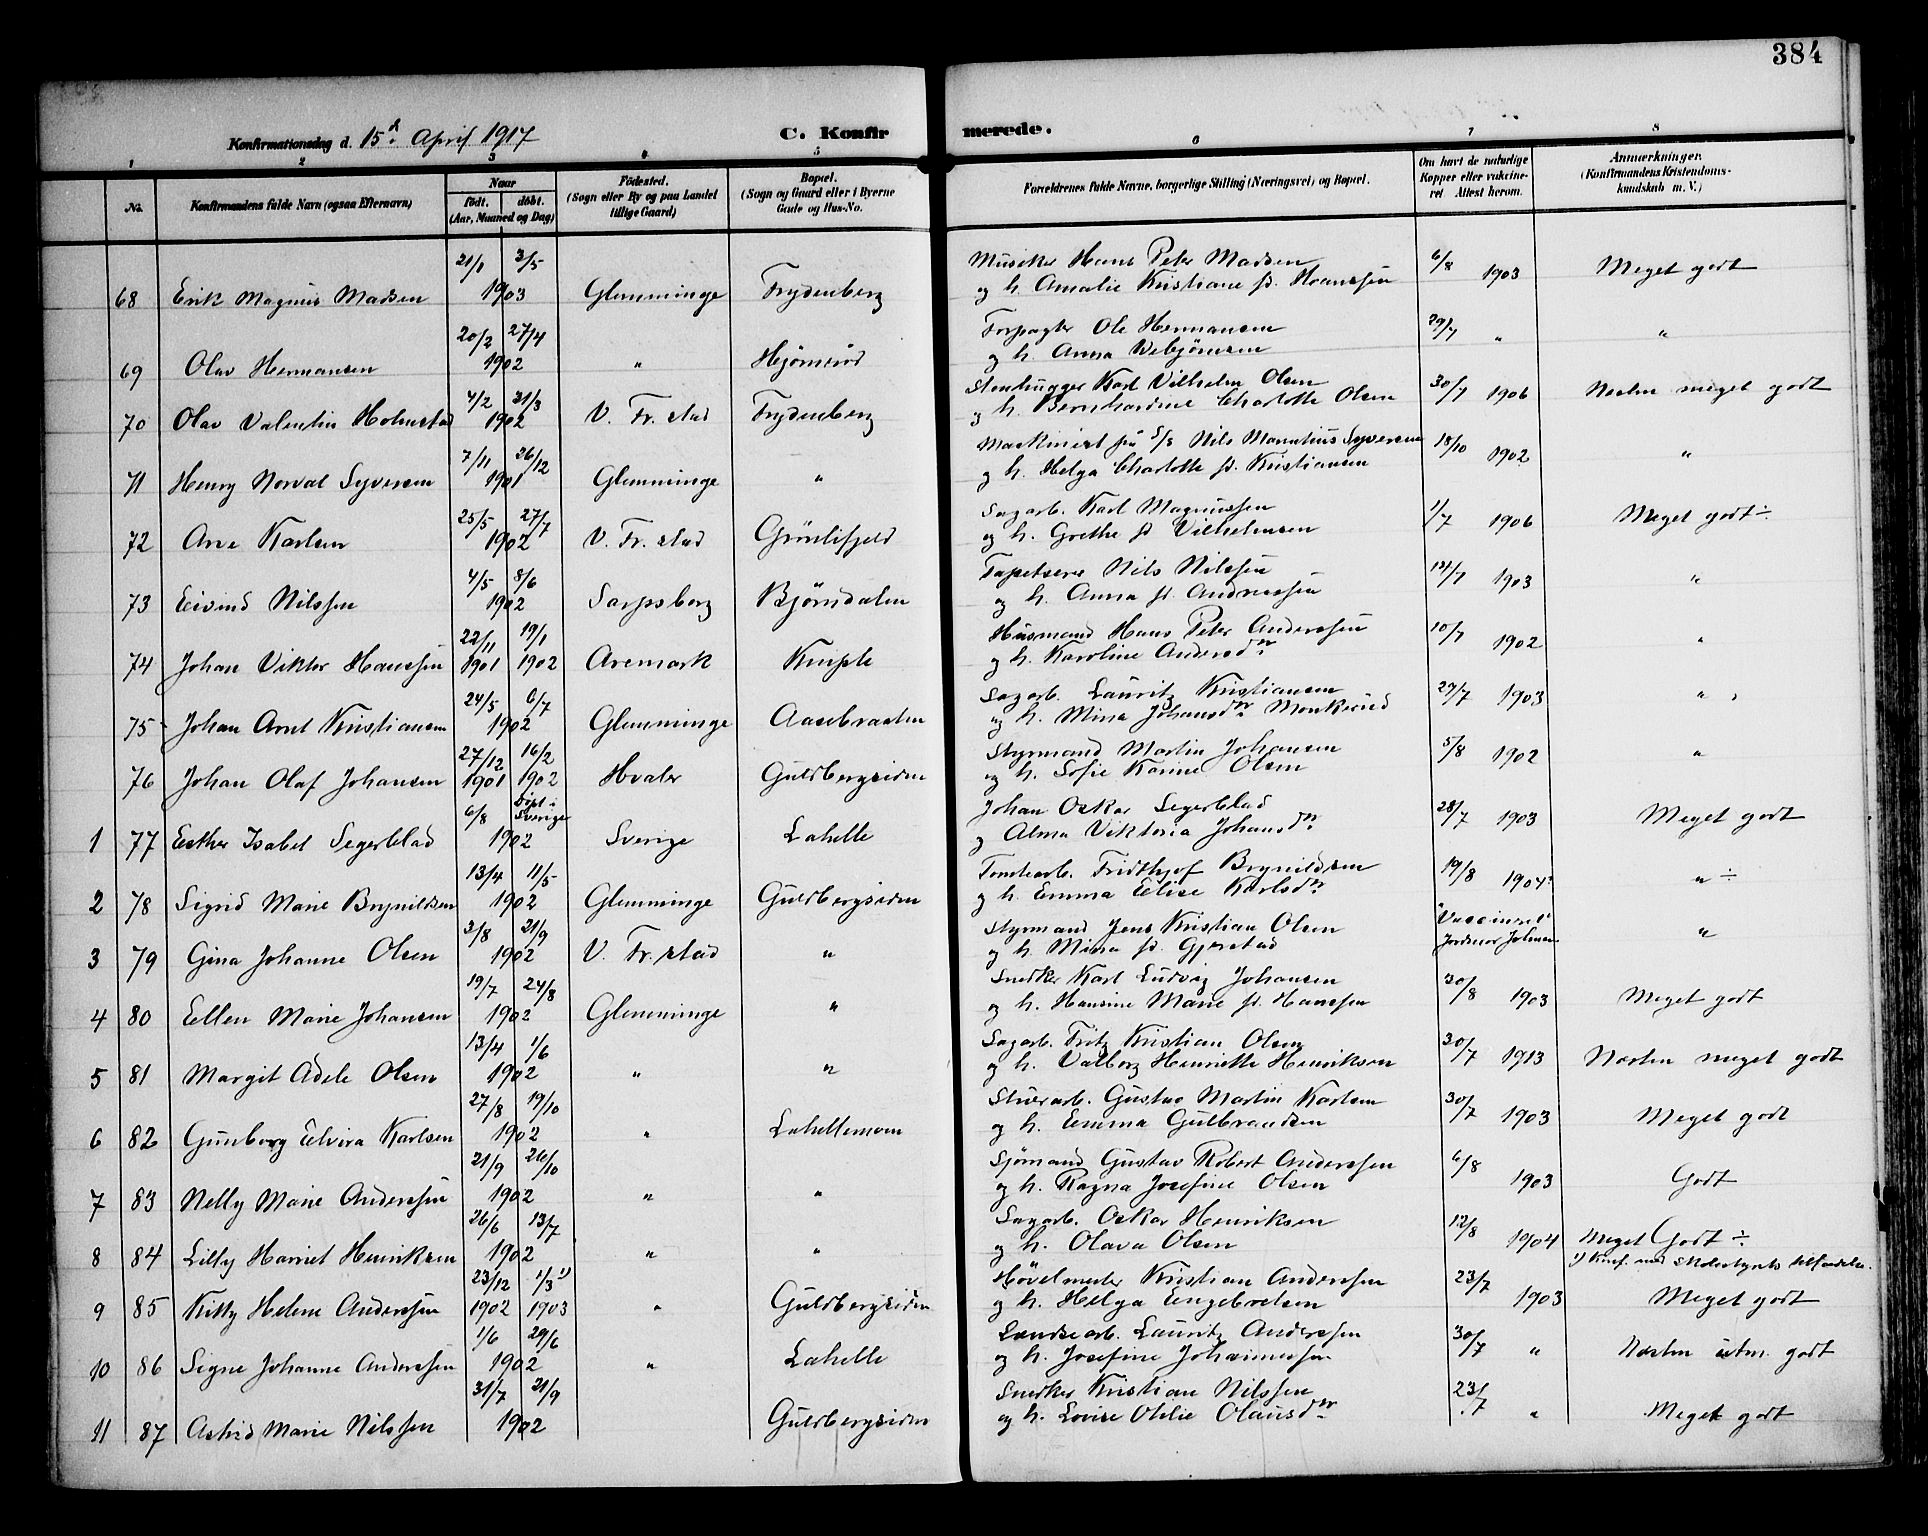 384
Konfirmationsdag d. 15d. April 1917
C. Konfirmerede.
1 2 3 4 5 6 7 8
No. Konfirmandens fulde Navn (ogsaa Efternavn) Naar født. døbt. (Aar, Maaned og Dag) Fødested. (Sogn eller By og paa Landet tillige Gaard) Bopæl. (Sogn og Gaard eller i Byerne Gade og Hus-No. Forældrenes fulde Navne, borgerlige Stilling (Næringsvei) og Bopæl. Om havt de naturlige Kopper eller vaccineret Attest herom. Anmærkninger. (Konfirmandens Kristendomskundskab m. V.)
21/1 3/5 Musiker Hans Peter Madsen 6/8
68 Erik Magnus Madsen 1903 Glemminge Frydenberg og h. Amalie Kristiane f. Hanssen 1903 Meget godt
20/2 27/4 Forpagter Ole Hermansen 29/7
69 Olav Hermansen 1902 " Hjørnerød og h. Anna Vebjørnsen " "
4/2 31/3 Stenhugger Karl Vilhelm Olsen 30/7
70 Olav Valentin Holmstad 1902 V. Fr.stad Frydenberg og h. Bernhardine Charlotte Olsen 1906 Næsten meget godt
7/11 26/12 Maskinist på S/S Nils Syversen 18/10
71 Henry Norval Syversen 1901 Glemminge " og h. Helga Charlotte f. Kristiansen 1902 "
25/5 27/7 Sagarb. Karl Magnussen 1/7
72 Arne Karlsen 1902 V. Fr.stad Grønlifjeld og h. Grethe f. Vilhelmsen 1906 Meget godt ÷
4/5 8/6 Tapetserer Nils Nilssen 14/7
73 Eivind Nilssen 1902 Sarpsborg Bjørndalen og h. Anna f. Andreassen 1903 "
22/11 19/1 Husmand Hans Peter Anderssen 10/7
74 Johan Viktor Hanssen 1901 1902 Aremark Kniple og h. Karoline Andersdr. 1902 "
24/5 6/7 Sagarb. Lauritz Kristiansen 27/7
75 Johan Arnt Kristiansen 1902 Glemminge Aasebraaten og h. Mina Johansdr. Monkerud 1903 "
27/12 16/2 Styrmand Martin Johansen 5/8
76 Johan Olaf Johansen 1901 1902 Hvaler Guldbergsiden og h. Sofie Karine Olsen 1902 "
6/8 døbt i Sverige Johan Oskar Segerblad 28/7
1 77 Esther Isabel Segerblad 1902 Sverige Lahelle og Alma Viktoria Johansdr. 1903 Meget godt
13/4 11/5 Tomtearb. Fridthjof Brynildsen 19/8
2 78 Sigrid Marie Brynildsen 1902 Glemminge Guldbergsiden og h. Emma Elise Karlsdr. 1904 " ÷
3/8 21/9 Styrmand Jens Kristian Olsen "Vaccineret"
3 79 Gina Johanne Olsen 1902 V. Fr.stad " og h. Mina f. Gjerstad Jordmor Johnsen "
19/7 24/8 Snedker Karl Ludvig Johansen 30/8
4 80 Ellen Marie Johansen 1902 Glemminge " og h. Hansine Marie f. Hanssen 1903 Meget godt
13/4 1/6 Sagarb. Fritz Kristian Olsen 30/7
5 81 Margit Adele Olsen 1902 " " og h. Valborg Henriette Henriksen 1913 Næsten meget godt
27/8 19/10 Stuerarb. Gustav Martin Karlsen 30/7
6 82 Gunborg Elvira Karlsen 1902 " Lahellemoen og h. Emma Gulbrandsen 1903 Meget godt
21/9 26/10 Sjømand Gustav Robert Anderssen 6/8
7 83 Nelly Marie Anderssen 1902 " " og h. Ragna Josefine Olsen 1903 Godt
26/6 13/7 Sagarb. Oskar Henriksen 12/8
8 84 Lilly Harriet Henriksen 1902 " " og h. Olava Olsen 1904 Meget Godt ÷
23/12 1/3 1) Høvelmester Kristian Anderssen 23/7 1) Konf. med Skolestyrets tilladelse.
9 85 Kitty Helene Anderssen 1902 1903 " Guldbergsiden og h. Helga Engebretsen 1903 Meget godt
1/6 29/6 Landsearb. Lauritz Anderssen 30/7
10 86 Signe Johanne Anderssen 1902 " Lahelle og h. Josefine Johannessen " Næsten utm. godt
31/7 21/9 Snedker Kristian Nilssen 23/7
11 87 Astrid Marie Nilssen 1902 Guldbergsiden og h. Lovise Otilie Olausdr. " Meget godt